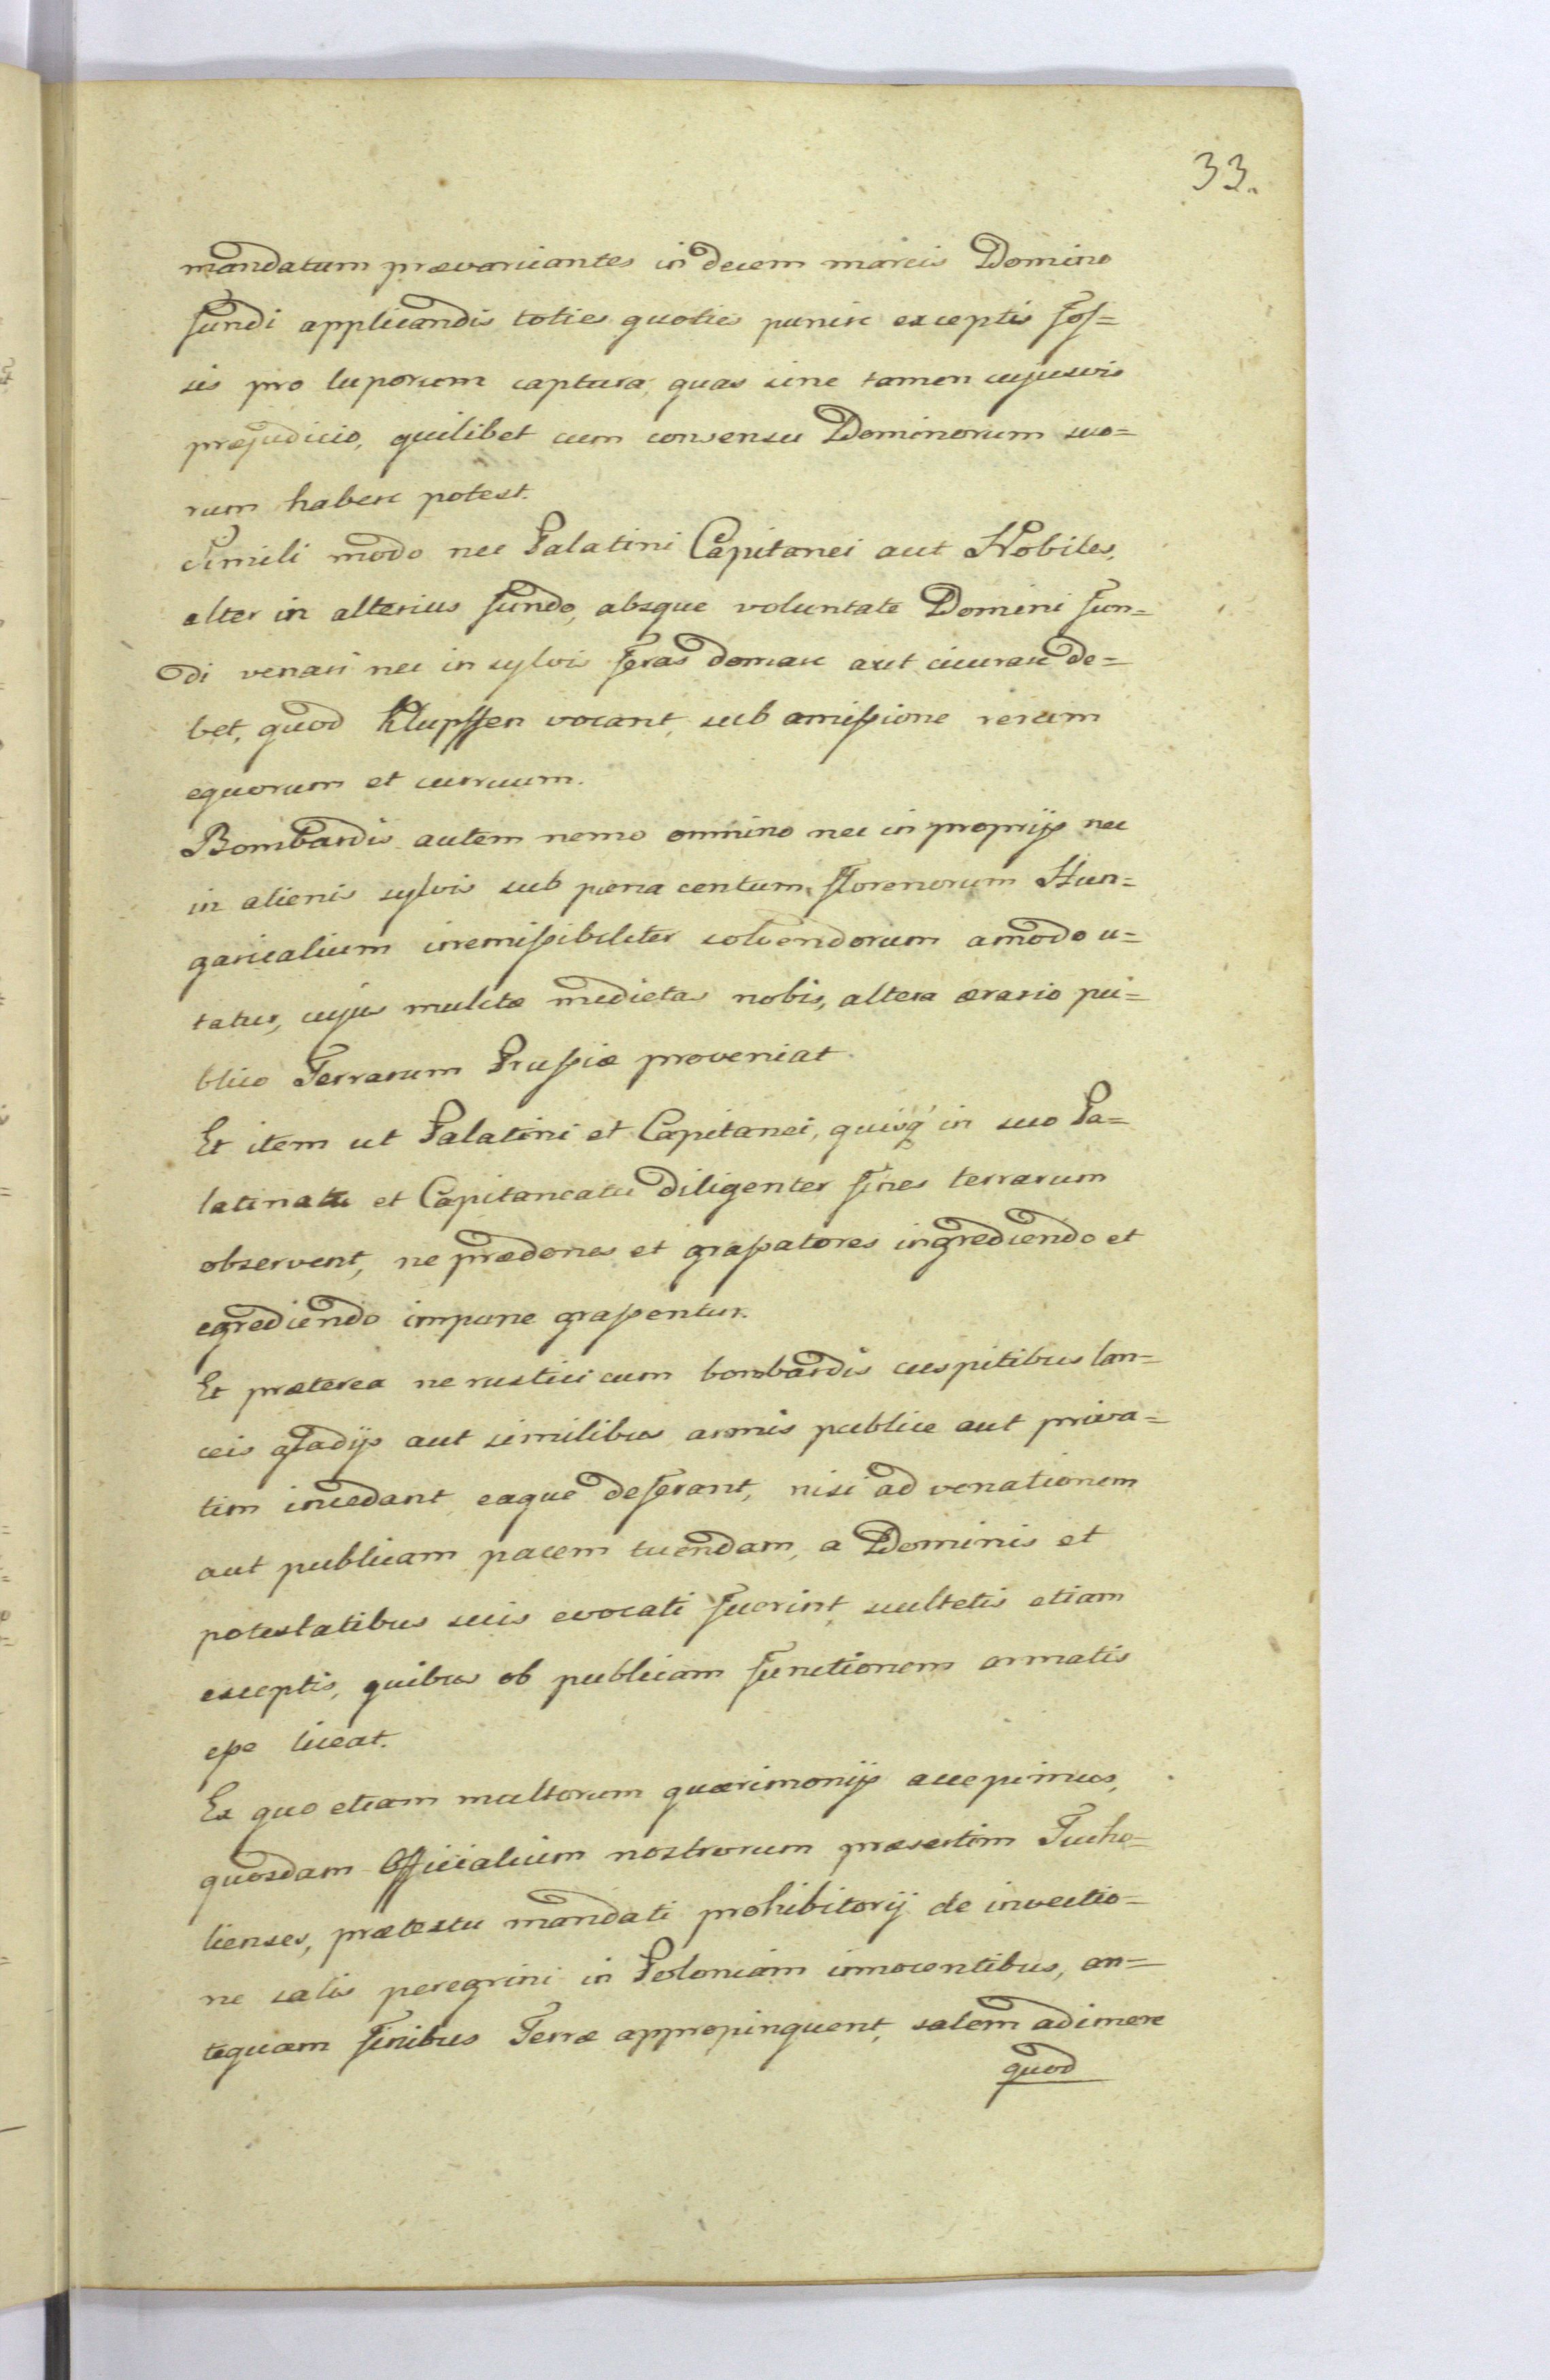 33.
mandatum prævaricantes in decem marcis Domino
fundi applicandis toties quoties punire exceptis fos=
sis pro luporum captura, quas sine tamen cujusvis
præjudicio, quilibet cum consensu Dominorum suo=
rum habere potest.
Simili modo nec Palatini Capitanei aut Nobiles,
alter in alterius fundo, absque voluntate Domini fun=
di venari nec in sylvis feras domare aut cicurare de=
bet, quod Klupffen vocant, sub amissione rerum
equorum et curruum.
Bombardis autem nemo omnino nec in proprijs nec
in alienis sylvis sub pœna centum florenorum Hun=
garicalium irremissibiliter solvendorum amodo u=
tatur, cujus mulctæ medietas nobis, altera ærario pu=
blico Terrarum Prussiæ proveniat.
Et item ut Palatini et Capitanei, quisq' in suo Pa=
latinatu et Capitaneatu diligenter fines terrarum
observent, ne prædones et grassatores ingrediendo et
egrediendo impune grassentur.
Et præterea ne rustici cum bombardis cuspitibus lan=
ceis gladijs aut similibus armis publice aut priva=
tim incedant eaque deferant, nisi ad venationem
aut publicam pacem tuendam, a Dominis et
potestatibus suis evocati fuerint, scultetis etiam
exceptis, quibus ob publicam functionem armatis
esse liceat.
Ex quo etiam multorum quærimonijs accepimus,
quosdam Officialium nostrorum præsertim Tucho=
lienses, prætextu mandati prohibitorij de invectio=
ne salis peregrini in Poloniam innocentibus, an=
tequam finibus Terræ appropinquent, salem adimere
quod